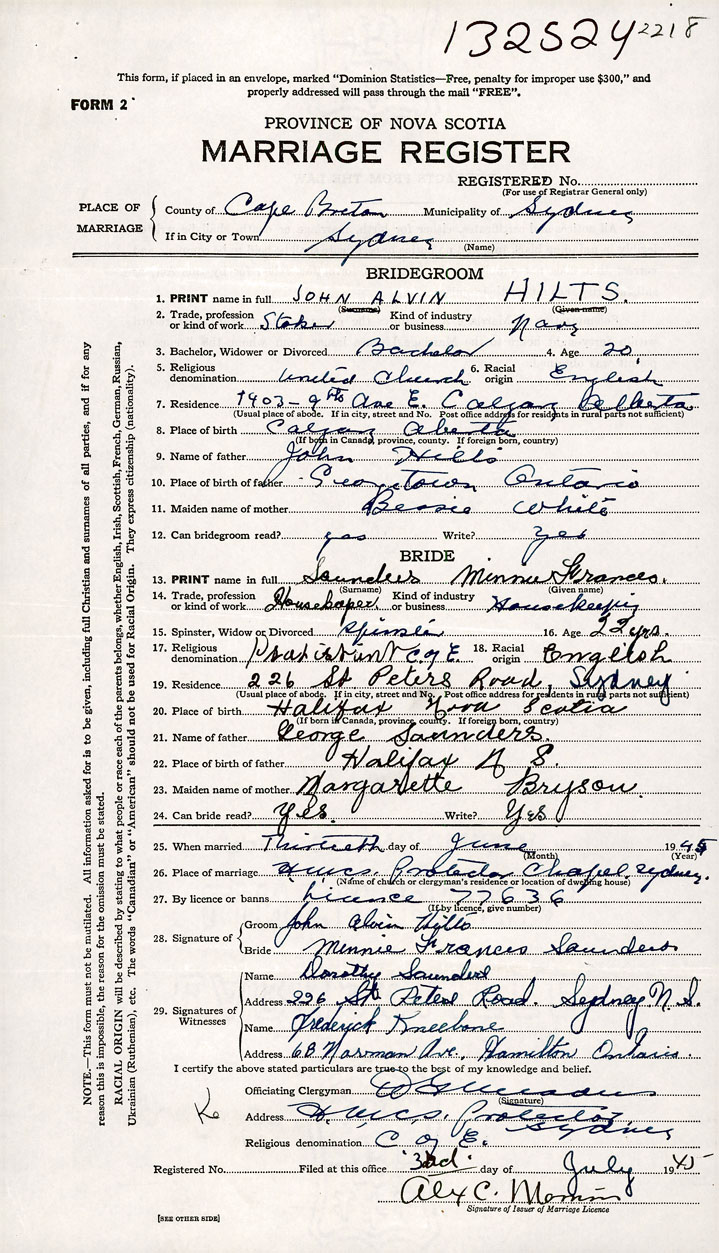 132524 2218
This form, if placed in an envelope, marked "Dominion Statistics—Free, penalty for improper use $300," and
properly addressed will pass through the mail "FREE".
FORM 2
PROVINCE OF NOVA SCOTIA
MARRIAGE REGISTER
REGISTERED No.
(For use of Registrar General only)
PLACE OF MARRIAGE
County of Cape Breton Municipality of Sydney
If in City or Town Sydney
(Name)
BRIDEGROOM
1. PRINT name in full JOHN ALVIN HILTS.
(Surname) (Given name)
2. Trade, profession or kind of work Stoker Kind of industry or business Navy
3. Bachelor, Widower or Divorced Bachelor 4. Age 20
5. Religious denomination United Church 6. Racial origin English
7. Residence 1903-9th Ave E. Calgary Alberta
(Usual place of abode. If in city, street and No. Post office address for residents in rural parts not sufficient)
8. Place of birth Calgary Alberta
(If born in Canada, province, county. If foreign born, country)
9. Name of father John Hilts
10. Place of birth of father Georgetown Ontario
11. Maiden name of mother Bessie White
12. Can bridegroom read? yes Write? Yes
BRIDE
13. PRINT name in full Saunders Minnie Frances.
(Surname) (Given name)
14. Trade, profession or kind of work Housekeper Kind of industry or business Housekeeping
15. Spinster, Widow or Divorced Spinster 16. Age 22 yrs.
17. Religious denomination C of E. 18. Racial origin English
19. Residence 226 St Peters Road, Sydney
(Usual place of abode. If in city, street and No. Post office address for residents in rural parts not sufficient)
20. Place of birth Halifax Nova Scotia
(If born in Canada, province, county. If foreign born, country)
21. Name of father George Saunders.
22. Place of birth of father Halifax N S.
23. Maiden name of mother Margarette Bryson.
24. Can bride read? Yes. Write? Yes
25. When married Thirtieth day of June 1945
(Month) (Year)
26. Place of marriage H.M.C.S. Protector Chapel, Sydney.
(Name of church or clergyman's residence or location of dwelling house)
27. By licence or banns Licence 77636
(If by licence, give number)
28. Signature of
Groom John Alvin Hilts
Bride Minnie Frances Saunders
29. Signatures of Witnesses
Name Dorothy Saunders
Address 226 St Peters Road. Sydney N.S.
Name Frederick Kneebone
Address 68 Norman Ave., Hamilton Ontario.
I certify the above stated particulars are true to the best of my knowledge and belief.
Officiating Clergyman
(Signature)
Address H.M.C.S. Protector Sydney
Religious denomination C of E.
Registered No. Filed at this office 3rd day of July 1945
Alex C.
Signature of Issuer of Marriage Licence
[SEE OTHER SIDE]
NOTE.—This form must not be mutilated. All information asked for is to be given, including full Christian and surnames of all parties, and if for any
reason this is impossible, the reason for the omission must be stated.
RACIAL ORIGIN will be described by stating to what people or race each of the parents belongs, whether English, Irish, Scottish, French, German, Russian,
Ukrainian (Ruthenian), etc. The words "Canadian" or "American" should not be used for Racial Origin. They express citizenship (nationality).